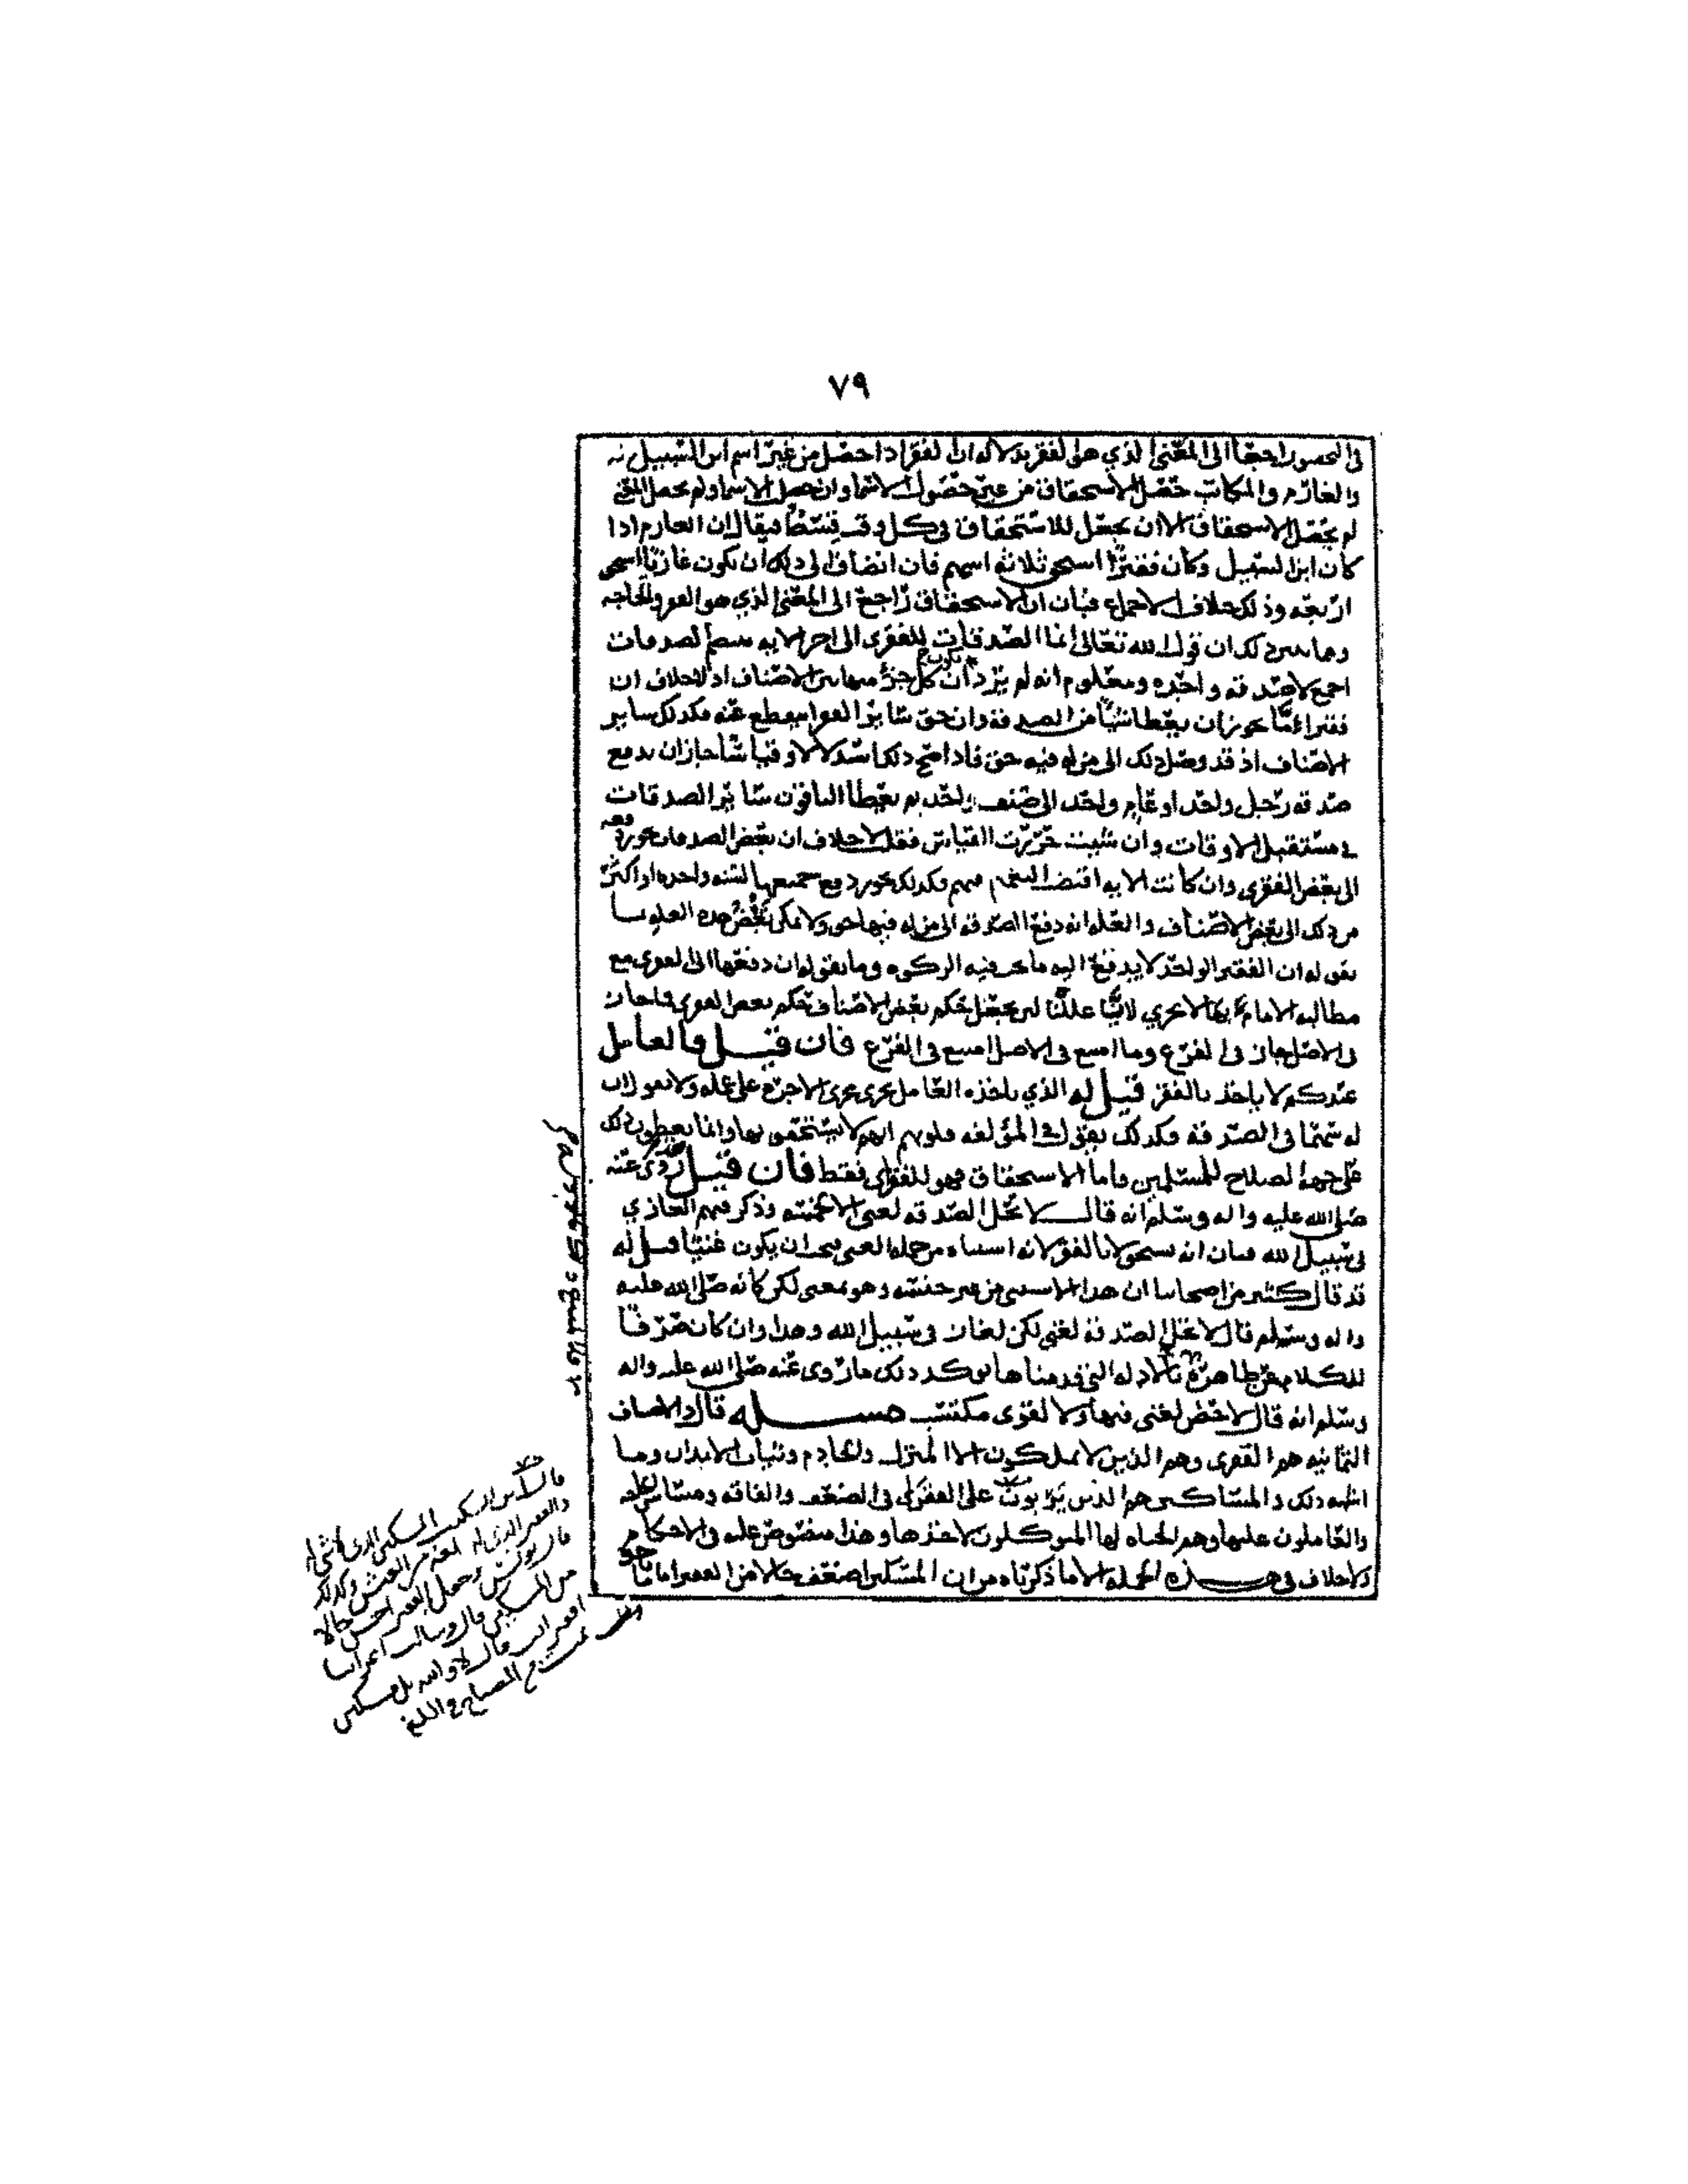 ٧٩
في الحصور راجعا الى المعنى الذي هو الفقر بدلالة ان الفقر اذا حصل من غير اسم ابن السبيل
والغارم والمكاتب حصل الاستحقاق من غير حصول الاسما وان حصل الاسما ولم يحصل المعنى
لم يحصل الاستحقاق الا ان يحصل للاستحقاق في كل وقت قسطا فيقال ان الغارم اذا
كان ابن السبيل وكان فقيرا استحق ثلاثة اسهم فان انضاف الى ذلك ان يكون غازيا استحق
اربعة وذلك خلاف الاجماع فبان ان الاستحقاق راجع الى المعنى الذي هو الفقر والحاجه
ومما يبين ذلك ان قول الله تعالى انما الصدقات للفقرى الى اخر الايه الصدقات
اجمع لا صدقه واحده ومعلوم انه لم يرد ان يكون كل جزؤ منها بين الاصناف اذ لا خلاف ان
فقراءنا يجوز ان يعطا شيئا من الصدقة وان حق سائر الفقرا منقطع عنه فكذلك ساير
الاصناف اذ قد وصل ذلك الى من له فيه حق فاذا صح ذلك استدلالا وقياسا جاز ان يدفع
صدقة رجل واحد او عام واحد الى صنف واحد ثم يعطا الباقون سائر الصدقات
في مستقبل الاوقات وان شيت حررت القياس فقلت لا خلاف ان بعض الصدقات يجوز دفعه
الى بعض الفقرى وان كانت الايه اقتضت التعميم فيهم فكذلك يجوز دفع جميعها لسنه واحده او اكثر
من ذلك الى بعض الاصناف والعله انه دفع الصدقه الى من له فيها حق ولا يمكن نقض هذه العله بما
نقوله ان الفقير الواحد لا يدفع اليه ما تجب فيه الزكوه وما نقوله ان دفعها الى الفقرى مع
مطالبه الامام بها لا يجزي لانا عللنا لنجعل حكم بعض الاصناف حكم بعض الفقرى فما جاز
في الاصل جاز في الفرع وما امتنع في الاصل امتنع في الفرع فان قيل والعامل
عندكم لا ياخذ بالفقر قيل له الذي ياخذه العامل يجري مجرى الاجره على عمله ولا نقول ان
له سهما في الصدقه وكذلك نقول في المؤلفه قلوبهم انهم لا يستحقون بها وانما يعطون ذلك
على جهه الصلاح للمسلمين واما الاستحقاق فهو للفقراى فقط فان قيل فقد روى عنه
صلى الله عليه واله وسلم انه قال لا تحل الصدقه لغني الا لخمسه وذكر فيهم الغازي
في سبيل الله فبان انه يستحق لا بالفقر لانه استثناه من جمله الغني فيجب ان يكون غنيا قيل له
قد قال كثير من اصحابنا ان هذا الاستثنى من غير جنسه وهو بمعنى لكن كانه صلى الله عليه
واله وسلم قال لا تحل الصدقة لغني لكن لغاز في سبيل الله وهذا وان كان صرفا
للكلام عن ظاهره فالادله التي قدمناها توكد ذلك ما روى عنه صلى الله عليه واله
وسلم انه قال لا حض لغني فيها ولا لقوى مكتسب مسله قال والاصناف
الثمانيه هم الفقرى وهم الذين لا يملكون الا المنزل والخادم وثياب الابدان وما
اشبه ذلك والمساكين هم الذين يزيدون على الفقراى في الضعف والفاقه ومساس الحاجه
والعاملون عليها وهم الجباه لها الموكلون لاخذها وهذا منصوص عليه في الاحكام
ولا خلاف في هذه الجمله الا ما ذكرناه من ان المسكين اضعف حالا من الفقير اما
قال ابن السكيت المسكين الذي لا شي له
والفقير الذي له بلغه من العيش وكذلك
قال يونس وجعل الفقير احسن حالا
من المسكين قال وسالت اعرابيا
افقير انت فقال لا والله بل مسكين